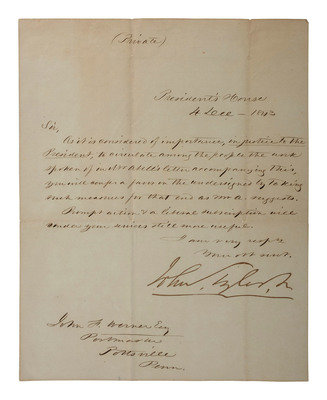 (Private)
President's House
4 Dec - 1843
Sir,
As it is considered of importance, in justice to the
President, to circulate among the people the work
spoken of in Mr Abell's letter accompanying this,
you will confer a favor on the undersigned by taking
such measures for that end as Mr A. suggests.
Prompt action & a liberal subscription will
render your services still more useful.
I am very resp'y
Your obt servt.
John Tyler, Jr
John F. Werner Esq
Postmaster
Pottsville
Penn.